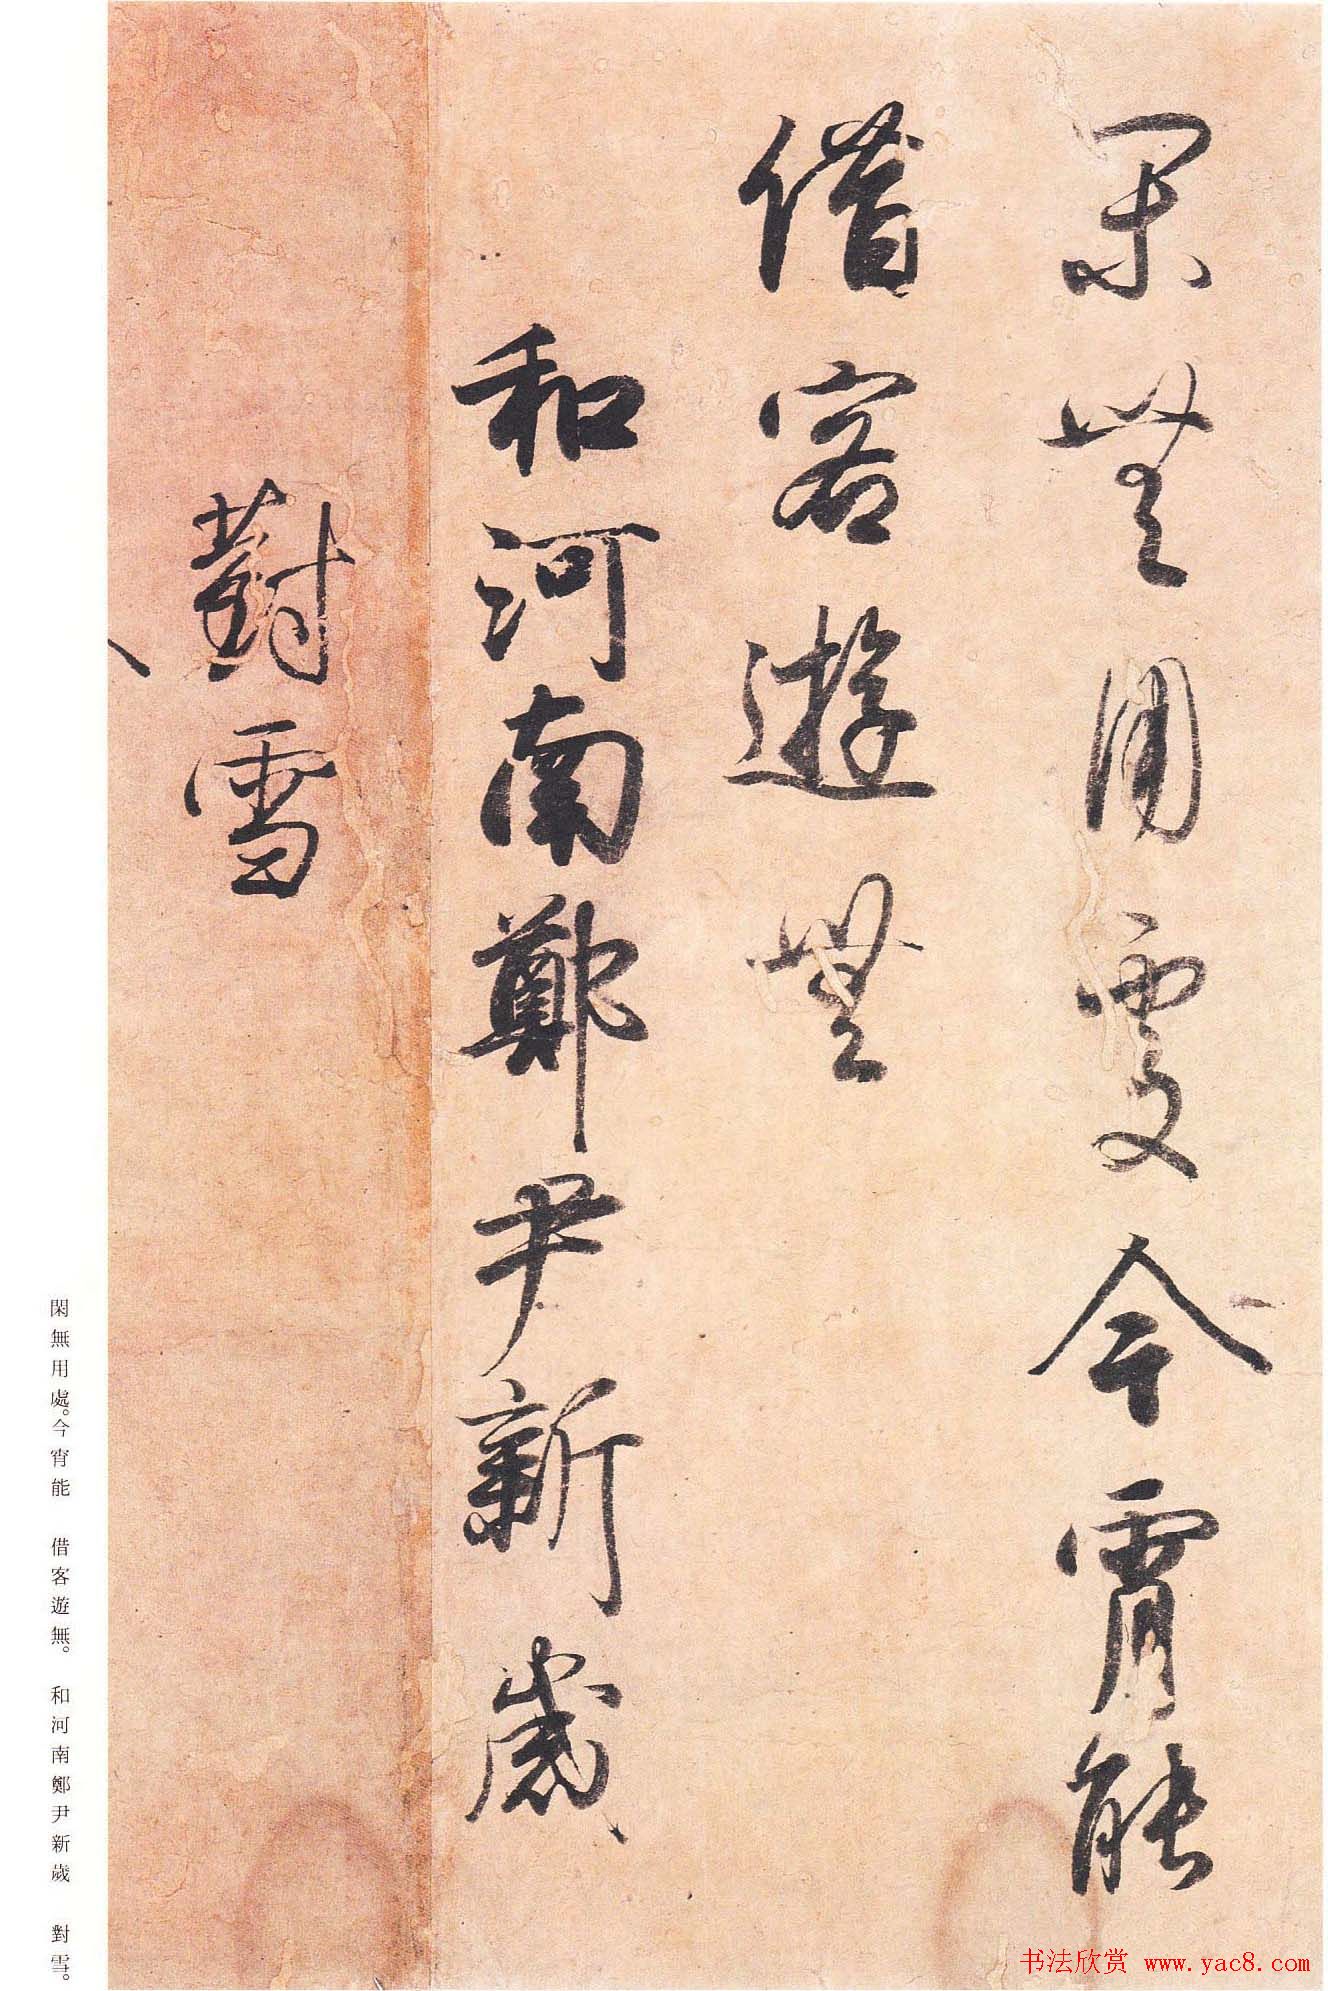 閑無用處今宵能
借客遊無
和河南鄭尹新歲
對雪
閑無用處。今宵能　借客遊無。　和河南鄭尹新歲　對雪。
书法欣赏 www.yac8.com